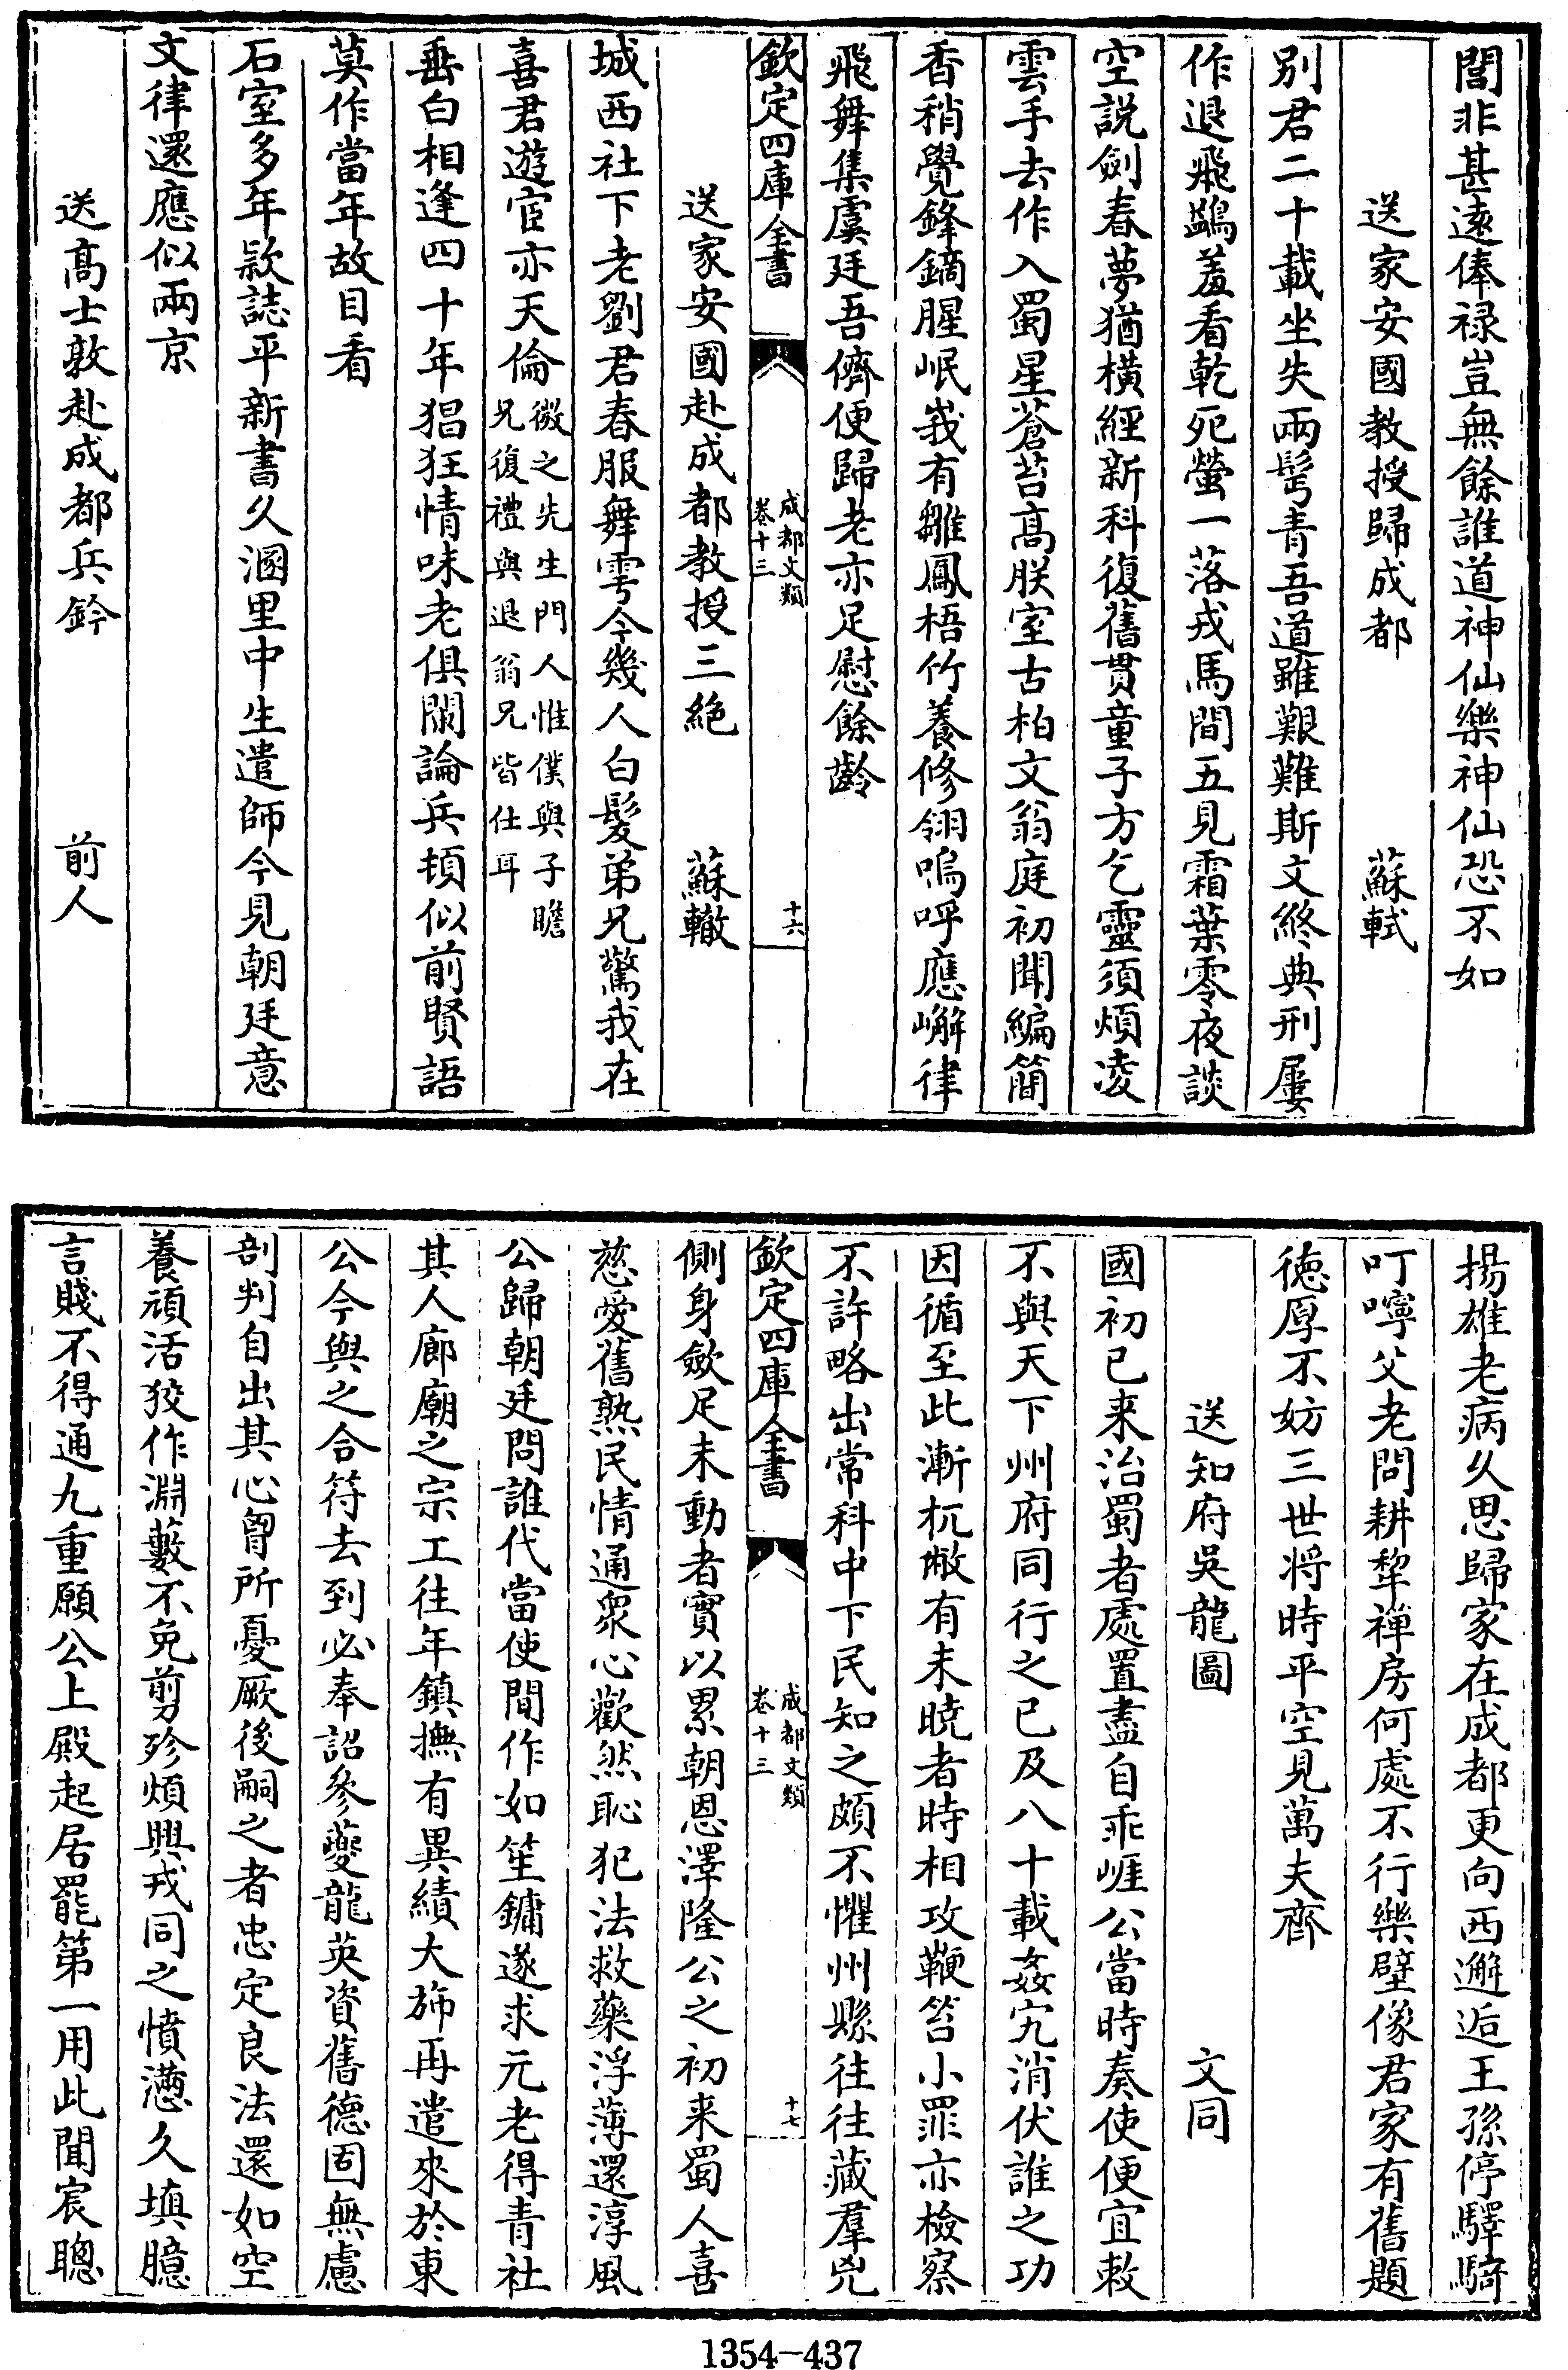 閭非甚遠俸禄豈無餘誰道神仙樂神仙恐不如
送家安國教授歸成都　蘇軾
别君二十載坐失兩髩青吾道雖艱難斯文終典刑屢
作退飛鷁羞看乾死螢一落戎馬間五見霜葉零夜談
空説劍春夢猶横經新科復舊貫童子方乞靈須煩凌
雲手去作入蜀星蒼苔髙朕室古柏文翁庭初聞編簡
香稍覺鋒鏑腥岷峩有雛鳳梧竹養修翎嗚呼應嶰律
飛舞集虞廷吾儕便歸老亦足慰餘齡
欽定四庫全書　成都文類卷十三　十六
送家安國赴成都教授三絶　蘇轍
城西社下老劉君春服舞雩今幾人白髮弟兄驚我在
喜君遊宦亦天倫微之先生門人惟僕與子瞻兄復禮與退翁兄皆仕耳
垂白相逢四十年猖狂情味老俱闌論兵頓似前賢語
莫作當年故目看
石室多年欵誌平新書久溷里中生遣師今見朝廷意
文律還應似兩京
送髙士敦赴成都兵鈐　前人
揚雄老病久思歸家在成都更向西邂逅王孫停驛騎
叮嚀父老問耕犂禪房何處不行樂壁像君家有舊題
徳厚不妨三世将時平空見萬夫齊
送知府吳龍圖　文同
國初已来治蜀者處置盡自乖崕公當時奏使便宜敕
不與天下州府同行之已及八十載姦宄消伏誰之功
因循至此漸杌敝有未曉者時相攻鞭笞小罪亦檢察
不許略出常科中下民知之頗不懼州縣往往藏羣兇
欽定四庫全書　成都文類卷十三　十七
側身斂足未動者實以累朝恩澤隆公之初来蜀人喜
慈愛舊熟民情通衆心歡然恥犯法救藥浮薄還淳風
公歸朝廷問誰代當使間作如笙鏞遂求元老得青社
其人廊廟之宗工往年鎮撫有異績大斾再遣來於東
公今與之合符去到必奉詔參夔龍英資舊德固無慮
剖判自出其心胷所憂厥後嗣之者忠定良法還如空
養頑活狡作淵藪不免剪殄煩興戎同之憤懣久填臆
言賤不得通九重願公上殿起居罷第一用此聞宸聰
1354-437